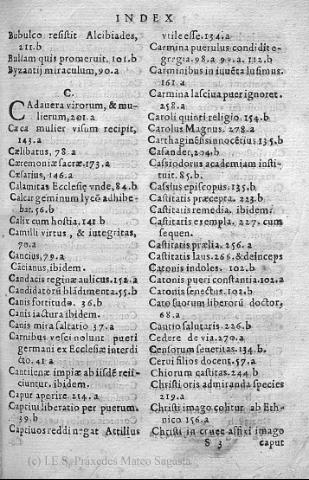 INDEX
Bubulco resistit Alcibiades,
211.b
Bullam quis promeruit. 101.b
Byzantij miraculum, 90.a
C.
CAdauera virorum, & mu-
lierum, 201.a
Cæca mulier visum recipit,
143.a
Cælibatus, 78.a
Cæremoniæ sacræ. 173.a
Cæsarius, 146.a
Calamitas Ecclesię vnde, 84.b
Calcar geminum lycęo adhibe-
bat. 56.b
Calix cum hostia, 141.b
Camilli virtus, & integritas,
70.a
Cancius, 79.a
Cācianus, ibidem.
Candacis reginæ aulicus. 152.a
Candidatorū blādimenta. 55.b
Canis fortitudo. 36.b
Canis iactura ibidem.
Canis mira saltatio. 37.a
Carnibus vesci nolunt pueri
germani ex Ecclesiæ interdi
cto. 41.a
Cantilenæ impiæ ab iisdē reii-
ciuntur. ibidem.
Caput aperire 214.a
Captiui liberatio per puerum.
39.b
Captiuos reddi negat Attilius
vtile esse. 134.a
Carmina puerulus condidit e-
gregia. 98.a 99.a. 112.b
Carminibus in iuuēta lusimus.
161.a
Carmina lasciua puer ignoret.
258.a
Caroli quinti religio. 154.b
Carolus Magnus. 278.a
Carthaginēsiū innocētia 135.b
Casander, 204.b
Cassiodorus academiam insti-
tuit. 85.b.
Cassius episcopus. 135.b
Castitatis præcepta. 223.b
Castitatis remedia. ibidem.
Castitatis exempla. 227. cum
sequen.
Castitatis prælia. 256.a
Castitatis laus. 266.& deinceps
Catonis indoles. 102.b
Catonis pueri constantia. 102.a
Catonis senectus. 102.b
Cato suorum liberorū doctor,
68.a
Cautio salutaris. 226.b
Cedere de via. 270.a
Censorum seueritas. 134.b.
Cerui filios docent. 57.a
Chiorum castitas. 244.b
Christi oris admiranda species
219.a
Christi imago colitur ab Eth-
nico 156.a
Christi in cruce affixi imago
S 3 caput
(c) I.E.S. Práxedes Mateo Sagasta